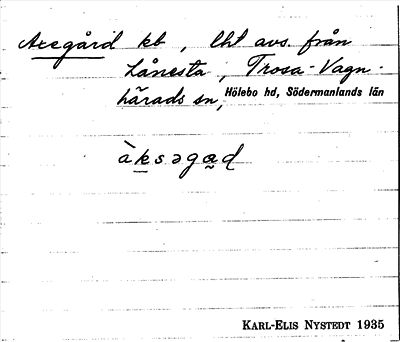 Axegård kb, lht avs. från
Lånesta, Trosa-Vagn-
härads sn, Hölebo hd, Södermanlands län
àksəgad
KARL-ELIS NYSTEDT 1935